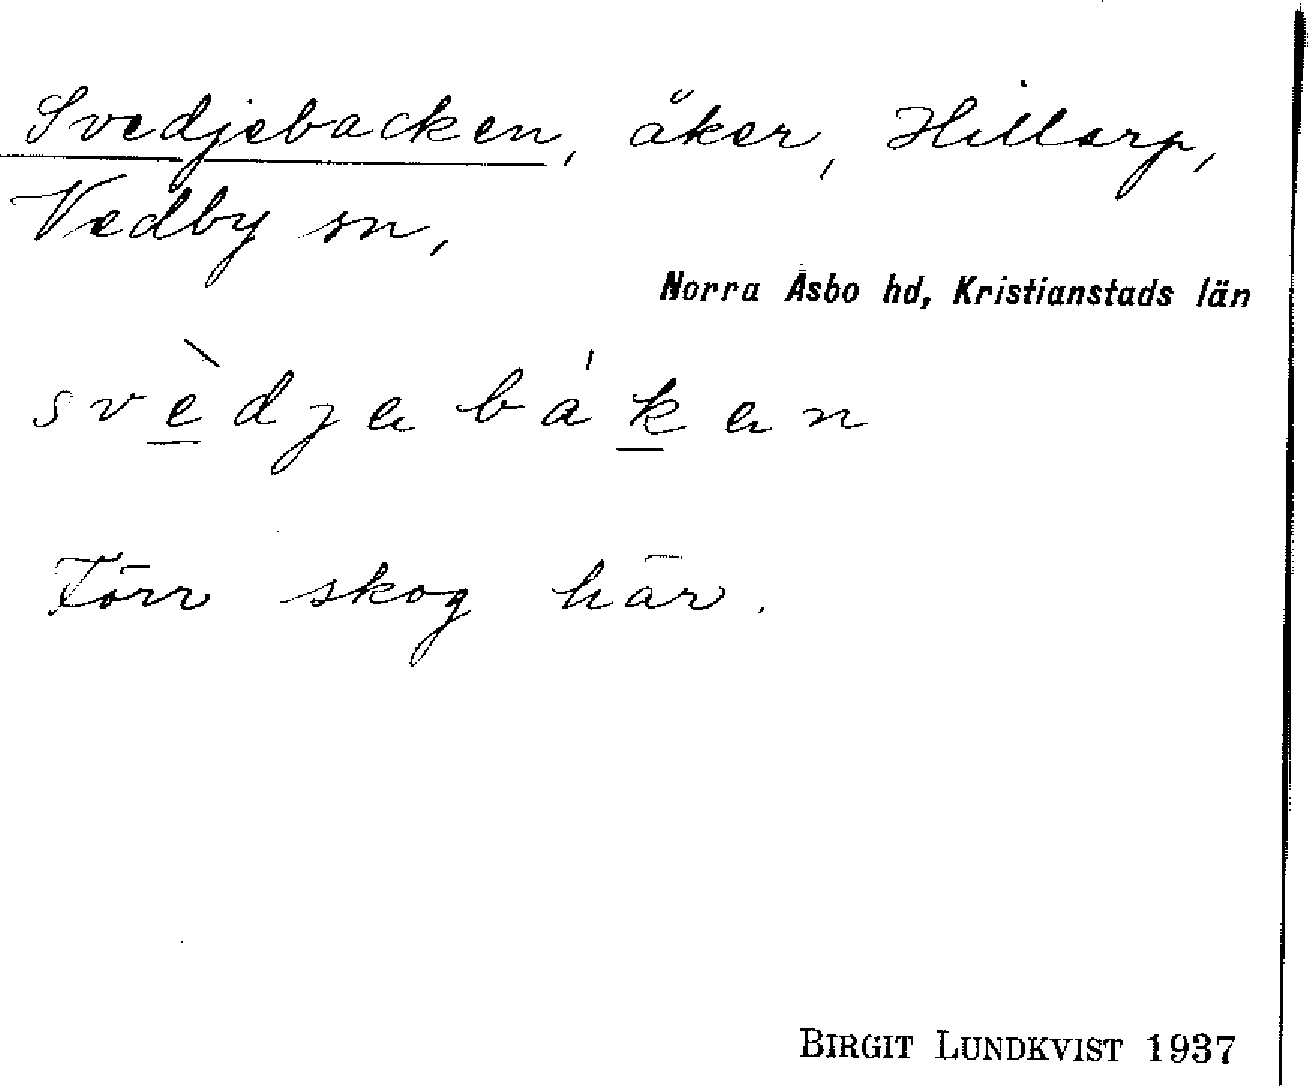 Svedjebacken, åker, Hillarp,
Vedby sn,
Norra Åsbo hd, Kristianstads län
svèdjabákan
Förr skog här.
BIRGIT LUNDKVIST 1937